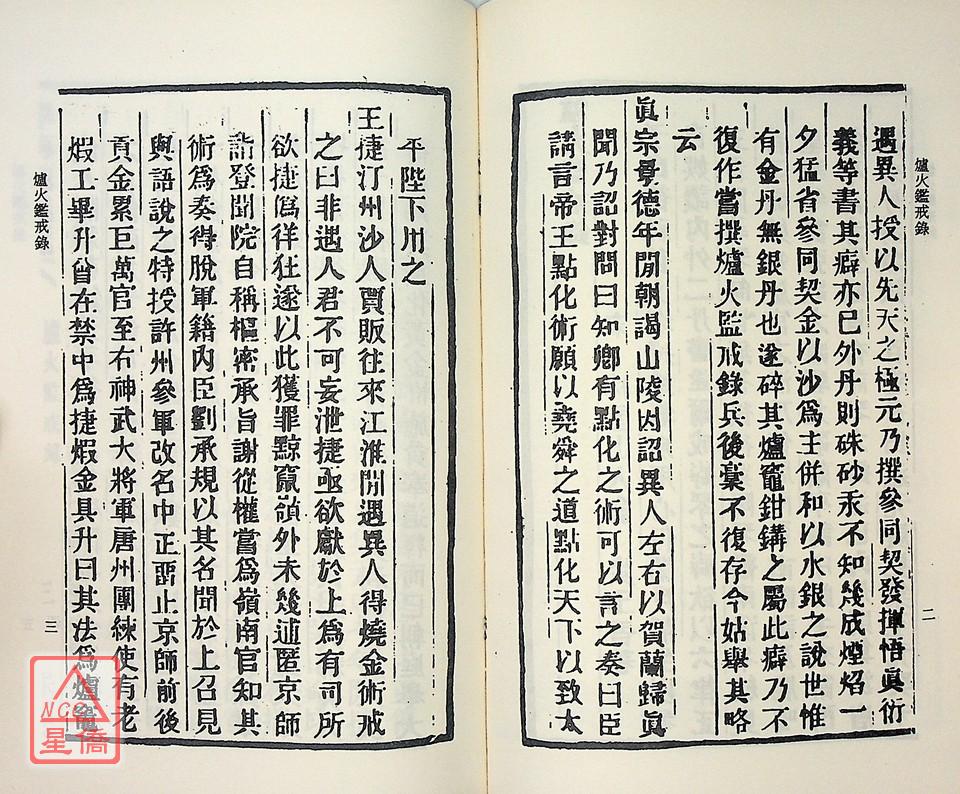 爐火鑑戒錄
二
遇異人授以先天之極元乃撰參同契發揮悟眞衍
義等書其癖亦已外丹則硃砂汞不知幾成煙焰一
夕猛省參同契金以沙爲主併和以水銀之說世惟
有金丹無銀丹也遂碎其爐竈鉗鏽之屬此癖乃不
復作嘗撰爐火監戒錄兵後稾不復存今姑舉其略
云
眞宗景德年閒朝謁山陵因詔異人左右以賀蘭歸眞
聞乃詔對問曰知卿有點化之術可以言之奏曰臣
請言帝王點化術願以堯舜之道點化天下以致太
平陛下用之
王捷汀州沙人賈販往來江淮閒遇異人得燒金術戒
之曰非遇人君不可妄泄捷亟欲獻於上爲有司所
欲捷僞徉狂遂以此獲罪黥竄嶺外未幾逋匿京師
詣登聞院自稱樞密承旨謝從權嘗爲嶺南官知其
術爲奏得脫軍籍內臣劉承規以其名聞於上召見
與語說之特授許州參軍改名中正畱止京師前後
貢金累巨萬官至右神武大將軍唐州團練使有老
煆工畢升曾在禁中爲捷煆金具升曰其法爲爐竈
爐火鑑戒錄
三
NCC
星僑